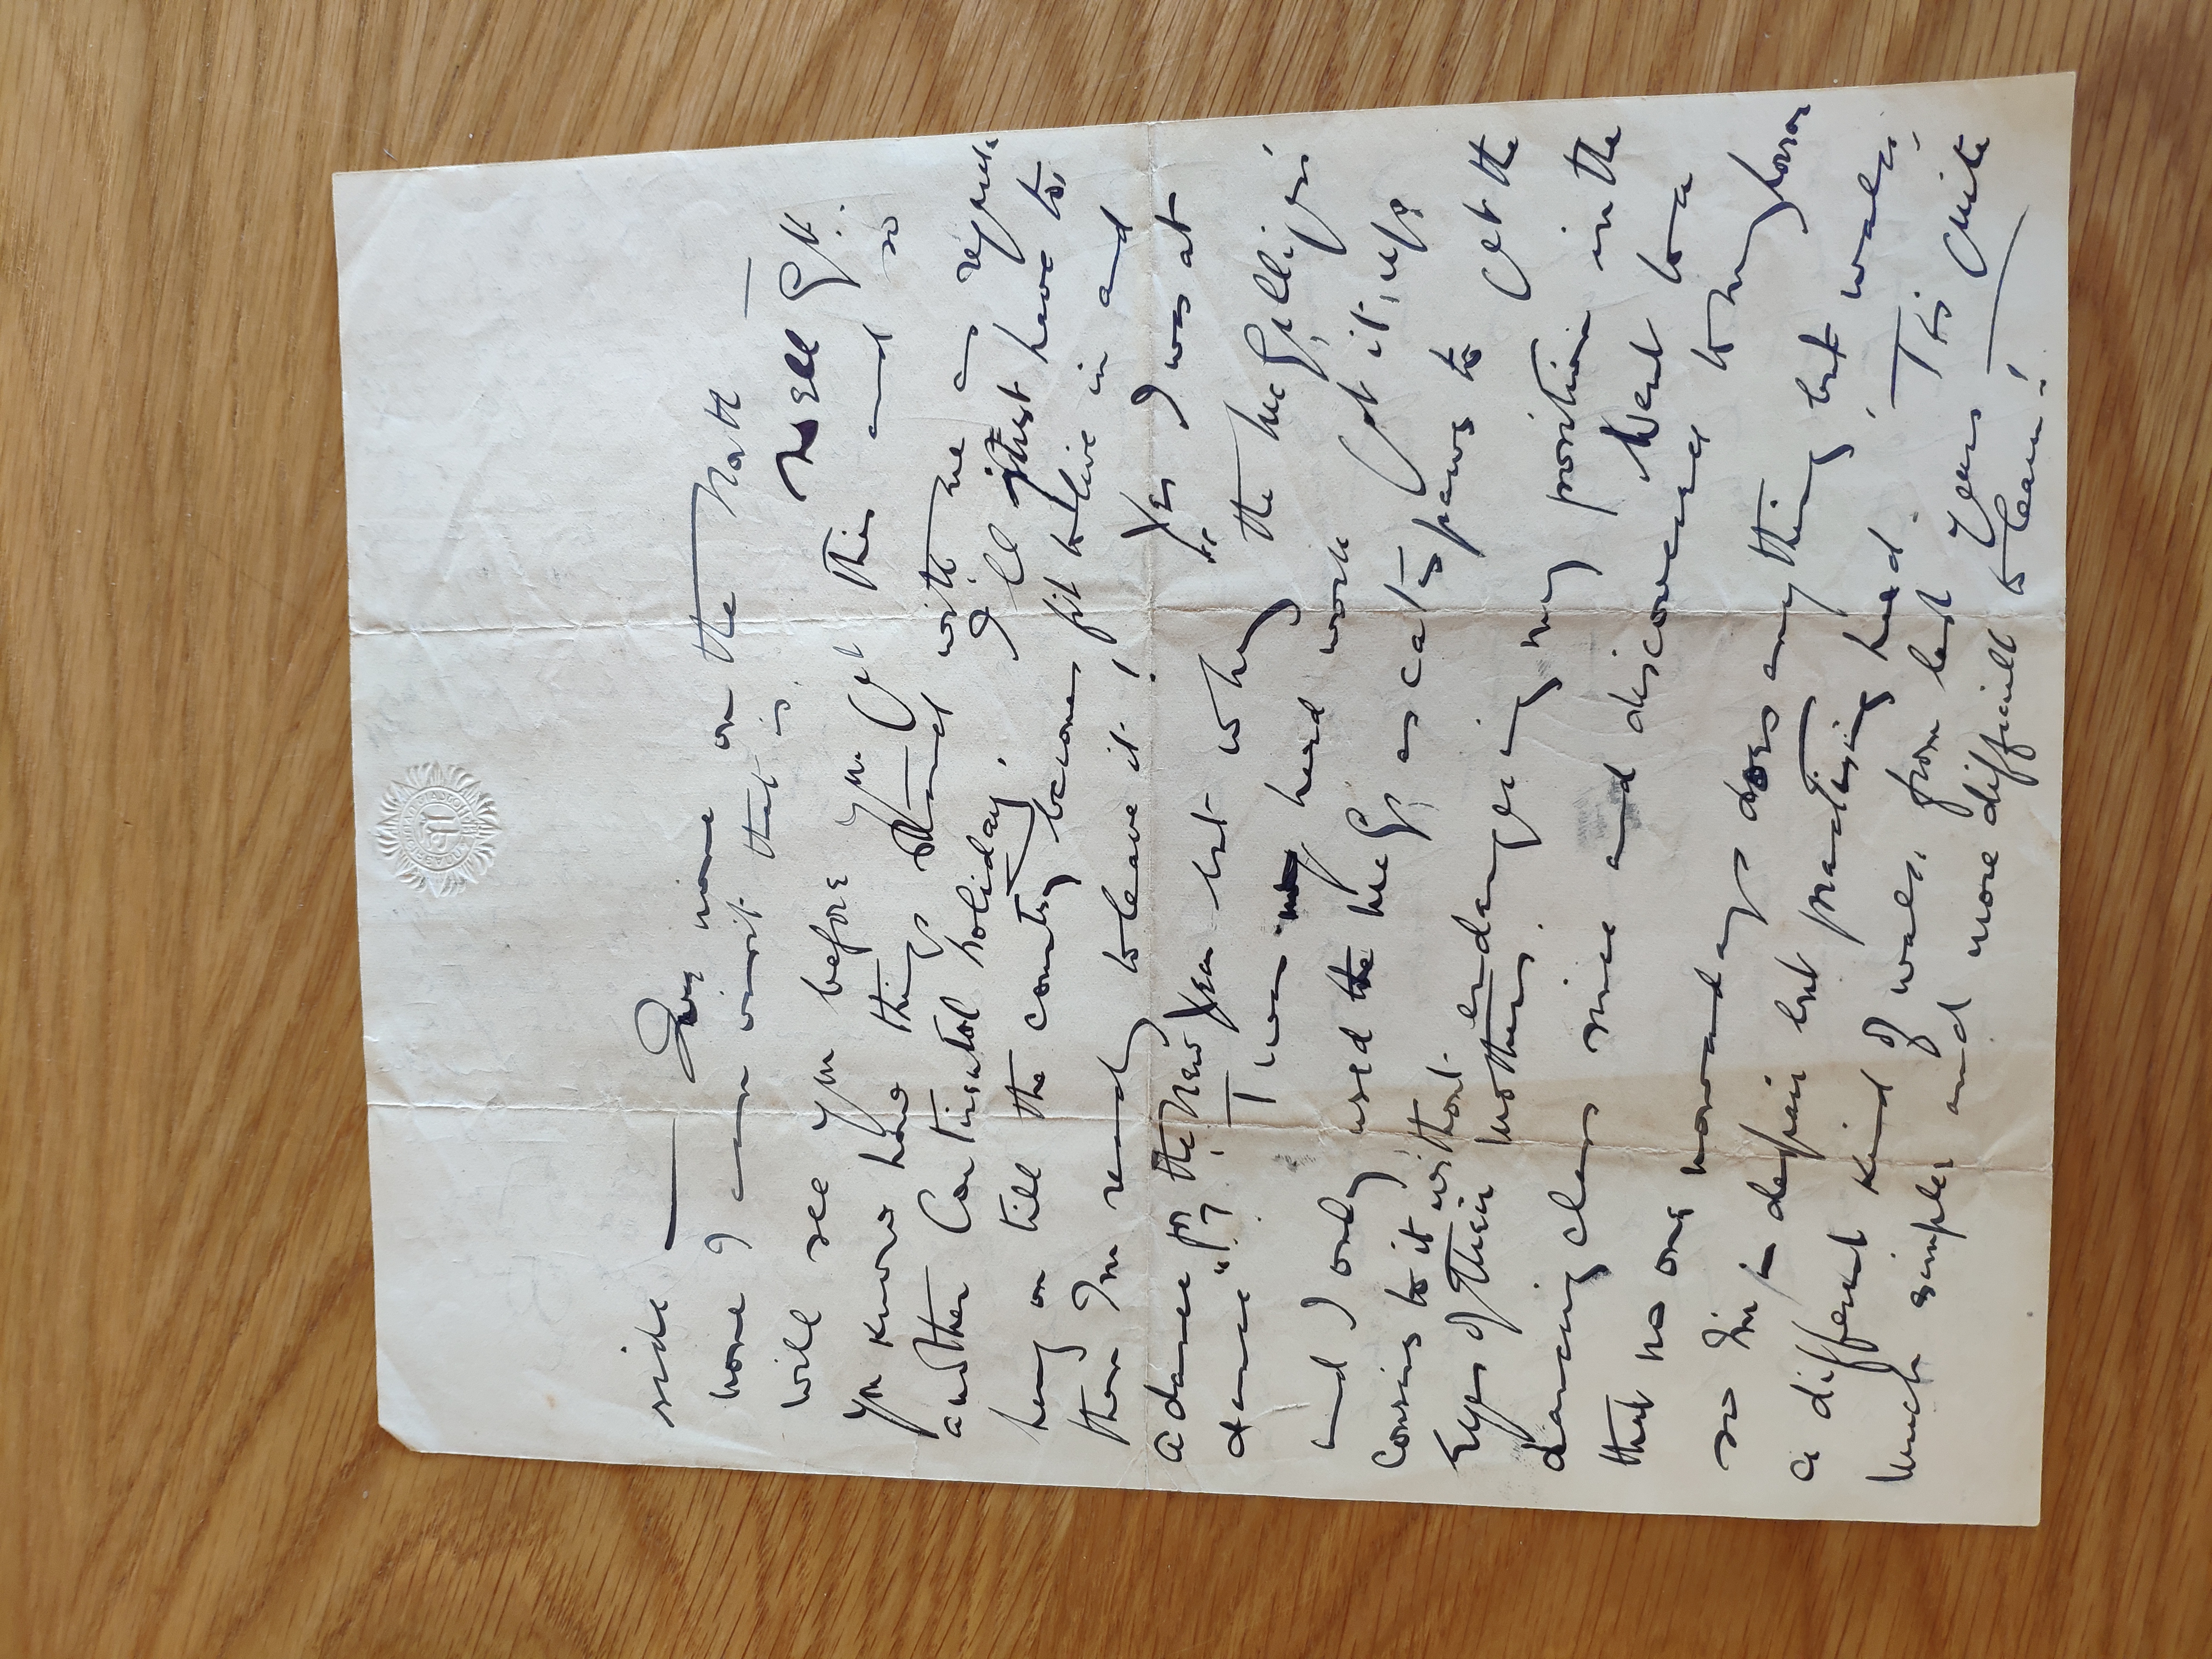 side — Dog nose on the Matt —
none I am worit that is.
will see you before you get this and so
you know how things stand with me as regards
another Continental holiday. I'll just have to
hang on till the country becomes fit to live in and
then I'm ready to leave it! Yes I was at
a dance for the New Year but why the McGilligs'
dance"? T was hard work Got it up
and I only used the McGs as cats paws to get the
cousins to it without endangering my position in the
Eyes of their mothers. Went to a
dancing class since and discovered to my horror
that no one nowadays does anything but walks,
so I'm in despair but practising hard. Tis quite
a different kind of walks from last years
much simpler and more difficult to learn!